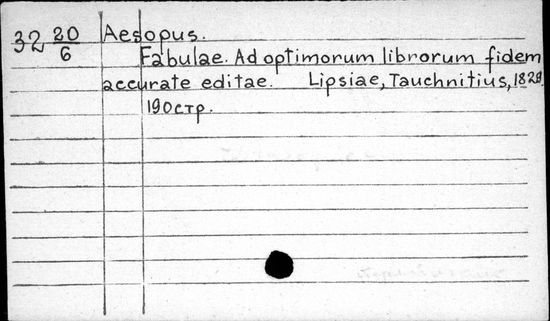 32 20/6 Aesopus.
Fabulae. Ad optimorum librorum fidem
accurate editae. Lipsiae, Tauchnitius, 1829.
190стр.